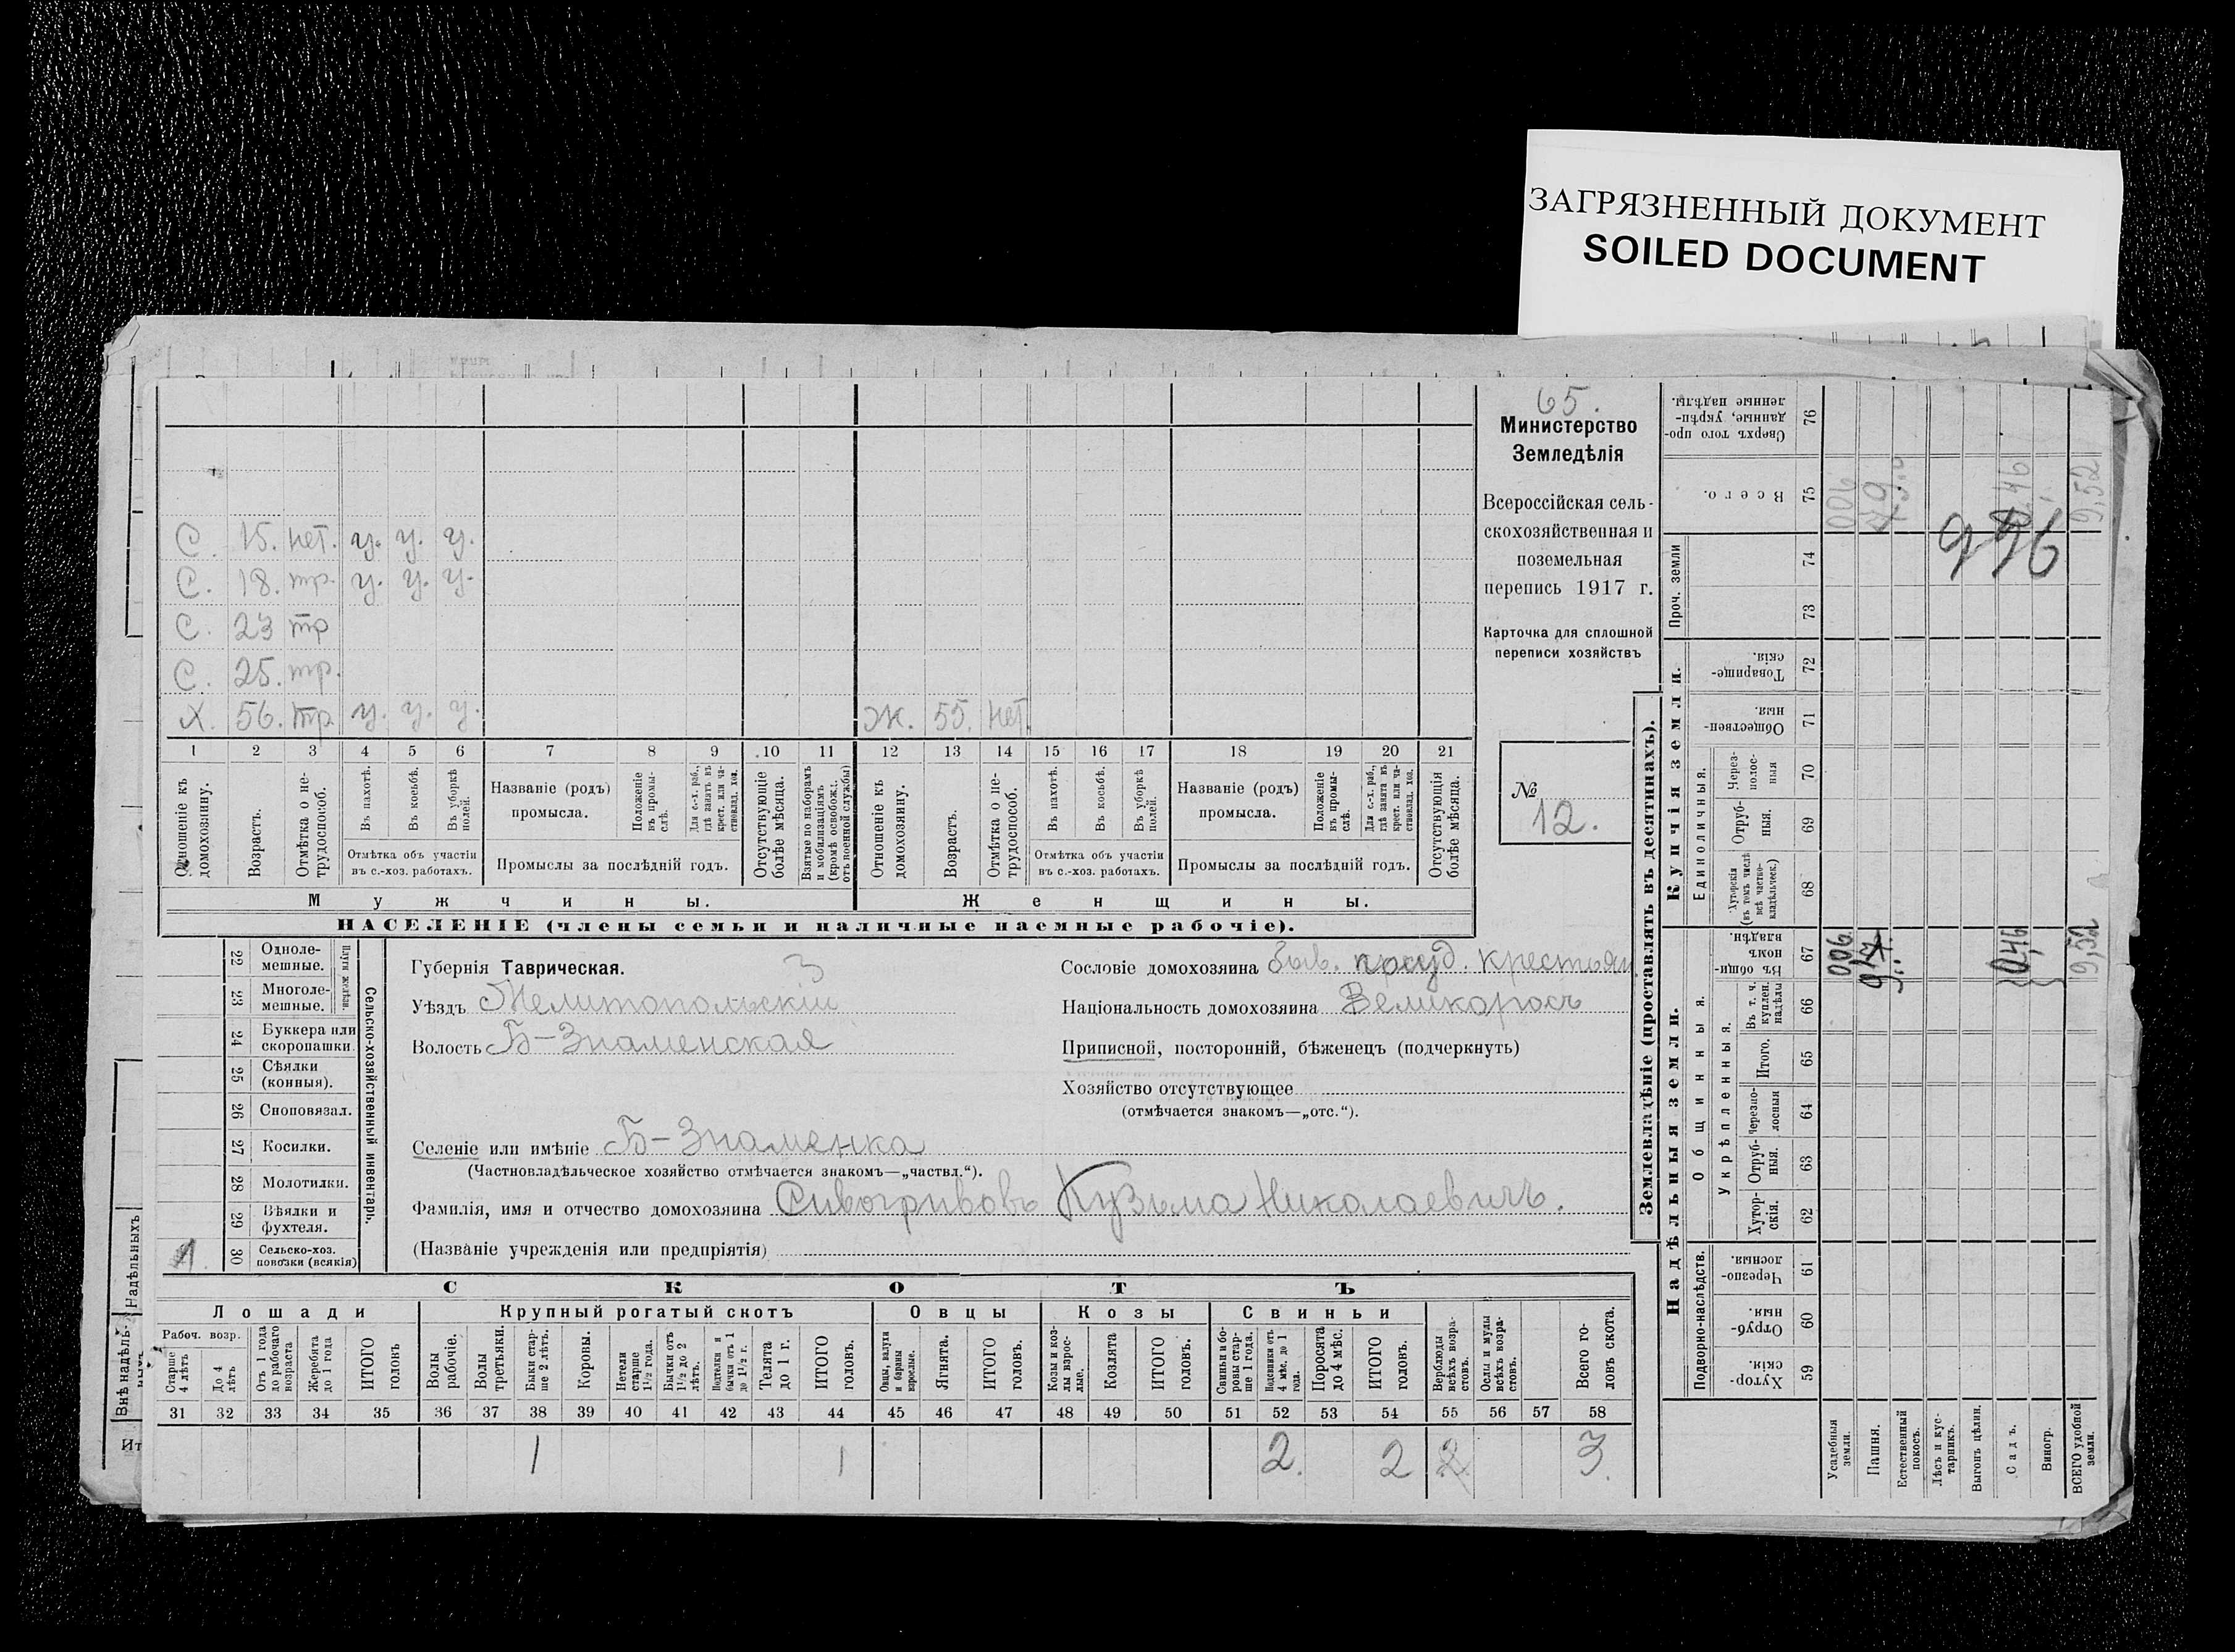 ЗАГРЯЗНЕННЫЙ ДОКУМЕНТ
SOILED DOCUMENT
65.
Министерство
Земледѣлія
Всероссійская сель-
скохозяйственная и
поземельная
перепись 1917 г.
Карточка для сплошной
переписи хозяйствъ
№
12.
С. 15. нет. у. у. у.
С. 18. тр. у. у. у.
С. 23 тр
С. 25. тр.
Х. 56. тр. у. у. у. Ж. 55. нет.
1 2 3 4 5 6 7 8 9 10 11 12 13 14 15 16 17 18 19 20 21
Отношеніе къ домохозяину.
Возрастъ.
Отмѣтка о не-трудоспособ.
Въ пахотѣ.
Въ косьбѣ.
Въ уборкѣ полей.
Отмѣтка объ участіи
въ с.-хоз. работахъ.
Названіе (родъ)
промысла.
Положеніе въ промы-слѣ.
Для с.-х. раб., гдѣ занятъ въ крест. или ча-стновлад. хоз.
Промыслы за послѣдній годъ.
Отсутствующіе болѣе мѣсяца.
Взятые по наборамъ и мобилизаціямъ (кромѣ освобожд. отъ военной службы)
Отношеніе къ домохозяину.
Возрастъ.
Отмѣтка о не-трудоспособ.
Въ пахотѣ.
Въ косьбѣ.
Въ уборкѣ полей.
Отмѣтка объ участіи
въ с.-хоз. работахъ.
Названіе (родъ)
промысла.
Положеніе въ промы-слѣ.
Для с.-х. раб., гдѣ занята въ крест. или ча-стновлад. хоз.
Промыслы за послѣдній годъ.
Отсутствующія болѣе мѣсяца.
Мужчины. Женщины.
НАСЕЛЕНІЕ (члены семьи и наличные наемные рабочіе).
22 Одноле-мешные.
23 Многоле-мешные.
Плуги желѣзн.
24 Буккера или скоропашки.
25 Сѣялки (конныя).
26 Сноповязал.
27 Косилки.
28 Молотилки.
29 Вѣялки и фухтеля.
1. 30 Сельско-хоз. повозки (всякія)
Сельско-хозяйственный инвентарь.
Губернія Таврическая. 3
Уѣздъ Мелитопольскій
Волость Б-Знаменская
Сословіе домохозяина быв. госуд. крестьян
Національность домохозяина Великоросъ
Приписной, посторонній, бѣженецъ (подчеркнуть)
Хозяйство отсутствующее
(отмѣчается знакомъ—„отс.“).
Селеніе или имѣніе Б-Знаменка
(Частновладѣльческое хозяйство отмѣчается знакомъ—„частвл.“).
Фамилія, имя и отчество домохозяина Сивогривовъ Кузьма Николаевичъ.
(Названіе учрежденія или предпріятія)
СКОТЪ
Лошади Крупный рогатый скотъ Овцы Козы Свиньи
Рабоч. возр.
Старше 4 лѣтъ
До 4 лѣтъ
Отъ 1 года до рабочаго возраста
Жеребята до 1 года
ИТОГО головъ
Волы рабочіе.
Волы третьяки.
Быки стар-ше 2 лѣтъ.
Коровы.
Нетели старше 1½ года.
Бычки отъ 1½ до 2 лѣтъ.
Подтелки и бычки отъ 1 до 1½ г.
Телята до 1 г.
ИТОГО головъ.
Овцы, валухи и бараны взрослые.
Ягнята.
ИТОГО головъ.
Козы и коз-лы взрос-лые.
Козлята
ИТОГО головъ.
Свиньи и бо-ровы стар-ше 1 года.
Подсвинки отъ 4 мѣс. до 1 года.
Поросята до 4 мѣс.
ИТОГО головъ.
Верблюды всѣхъ возра-стовъ.
Ослы и мулы всѣхъ возра-стовъ.
Всего го-ловъ скота.
31 32 33 34 35 36 37 38 39 40 41 42 43 44 45 46 47 48 49 50 51 52 53 54 55 56 57 58
1 1 2. 2 2 3.
Землевладѣніе (проставлять въ десятинахъ).
Надѣльныя земли.
Купчія земли.
Проч. земли
Подворно-наслѣдств.
Общинныя.
Укрѣпленныя.
Единоличныя.
Сверхъ того про-данные, укрѣп-ленные надѣлы. 76
Всего. 75
74
73
Товарище-скія. 72
Обществен-ныя. 71
Через-полос-ныя 70
Отруб-ныя. 69
Хуторскія (въ томъ числѣ всѣ частно-владѣльческ.) 68
Въ общи-номъ владѣн. 67
Въ т. ч. куплен. надѣлы 66
Итого. 65
Черезпо-лосныя 64
Отруб-ныя. 63
Хутор-скія. 62
Черезпо-лосныя 61
Отруб-ныя. 60
Хутор-скія. 59
Усадебныя земли.
Пашня.
Естественный покосъ.
Лѣсъ и кус-тарникъ.
Выгонъ цѣлин.
Садъ.
Виногр.
ВСЕГО удобной земли.
006
0,46
9,52
996
006
0,46
9,52
Надѣльныхъ
Внѣ надѣль-
Ит